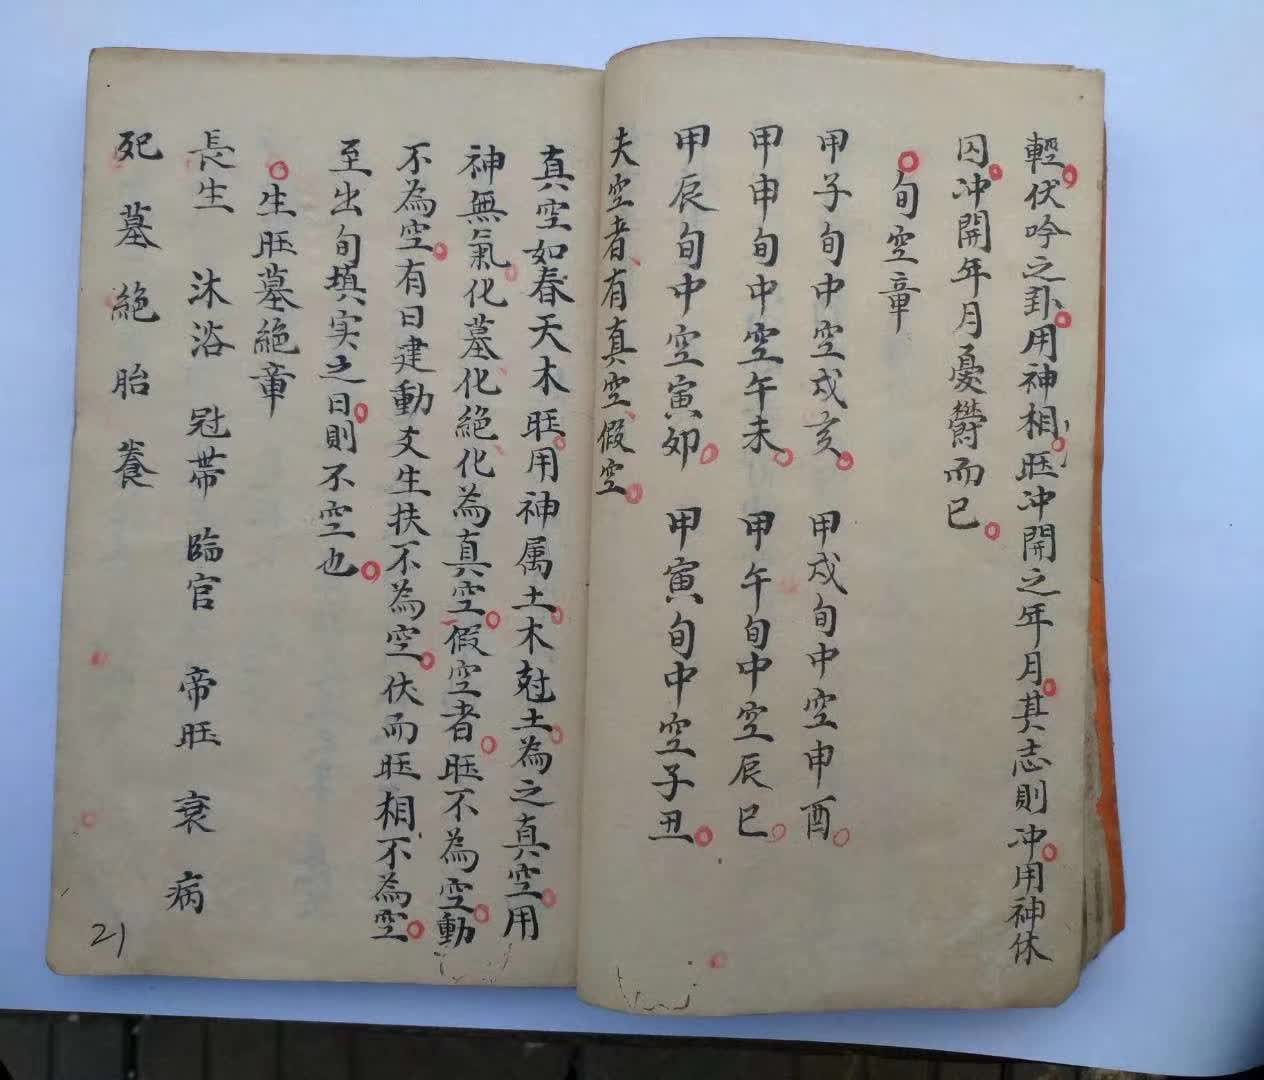 輕伏吟之卦用神相旺冲開之年月其志則冲用神休
囚冲開年月憂鬱而已
旬空章
甲子旬中空戍亥 甲戍旬中空申酉
甲申旬中空午未 甲午旬中空辰巳
甲辰旬中空寅卯 甲寅旬中空子丑
夫空者有真空假空
真空如春天木旺用神属土木尅土為之真空用
神無氣化墓化絕化為真空假空者旺不為空動
不為空有日建動爻生扶不為空伏而旺相不為空
至出旬填实之日則不空也
生旺墓絕章
長生 沐浴 冠帶 臨官 帝旺 衰 病
死 墓 絕 胎 養
21